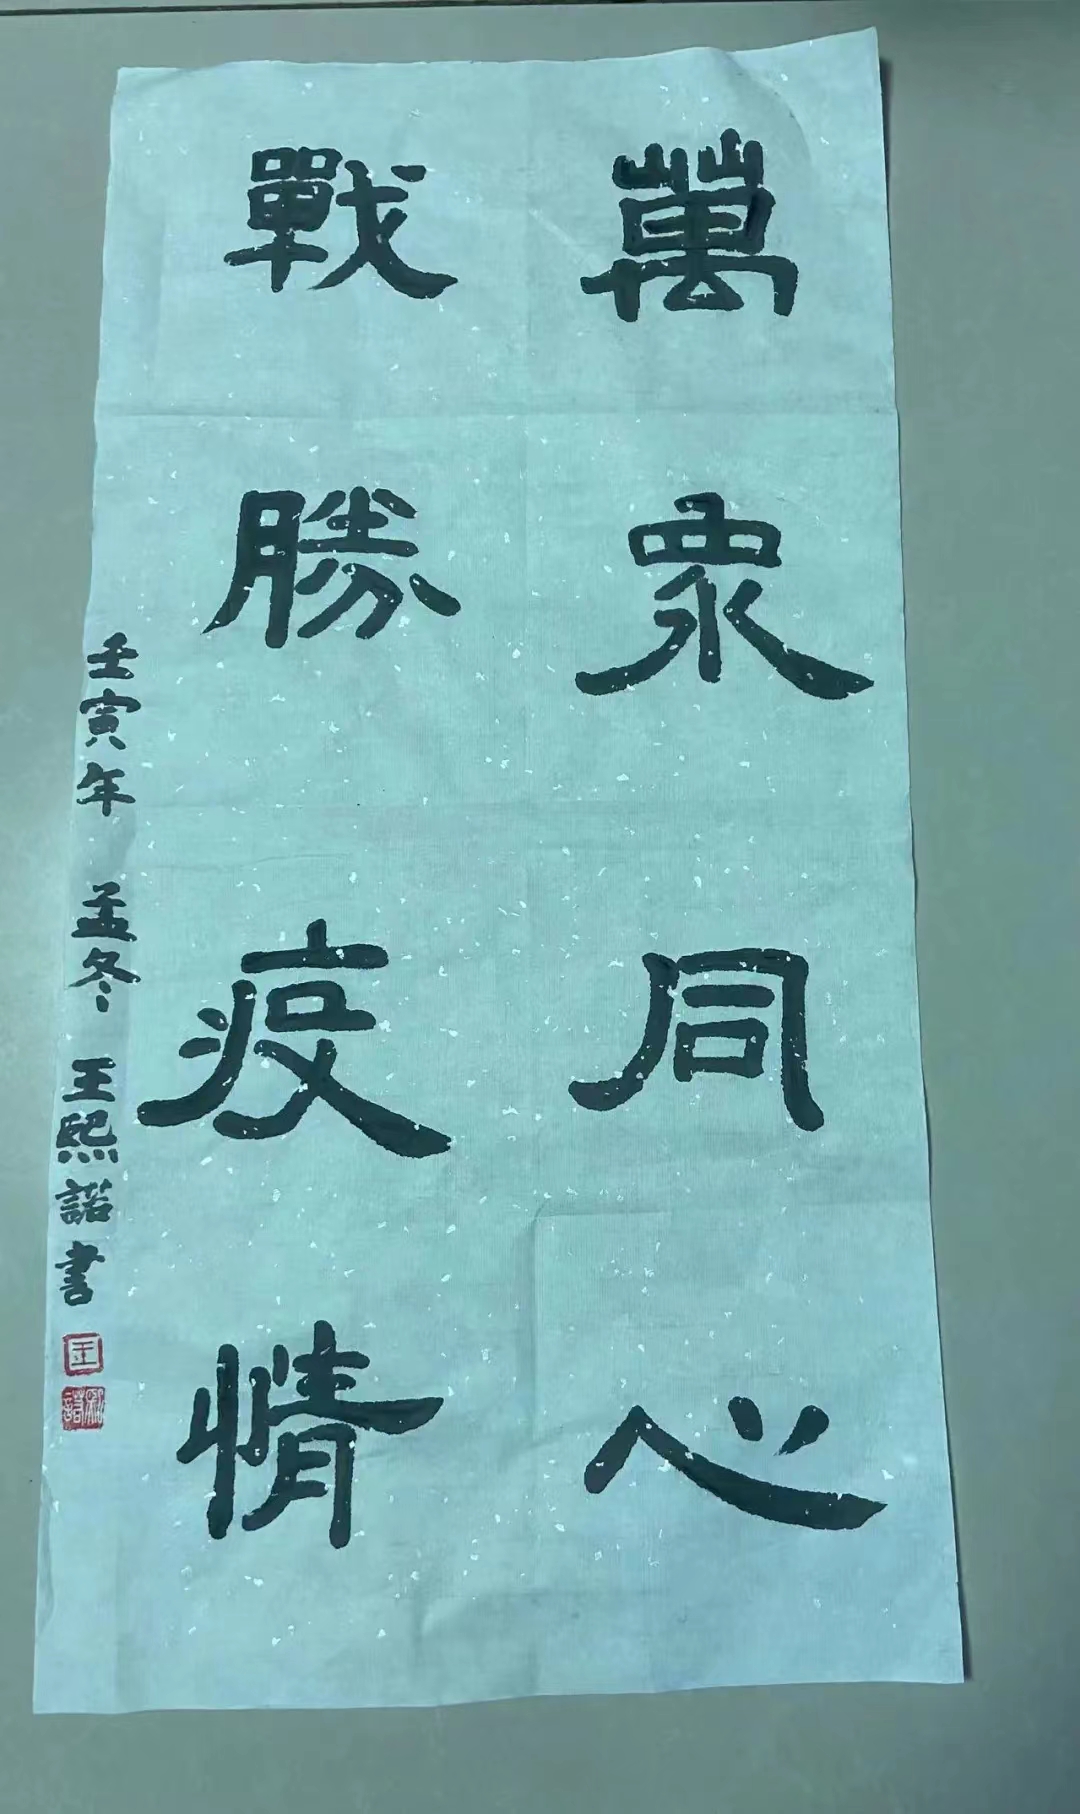 萬眾同心
戰勝疫情
壬寅年 孟冬 王熙諾書
王
熙諾